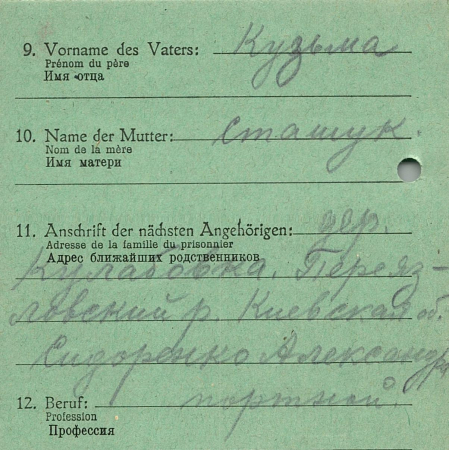 9. Vorname des Vaters: Кузьма
Prénom du père
Имя отца
10. Name der Mutter: Сташук.
Nom de la mère
Имя матери
11. Anschrift der nächsten Angehörigen: дер.
Adresse de la famille du prisonnier
Адрес ближайших родственников
Перeяз-
ловский р. Киевская об.
Сидоренко Александр
12. Beruf: портной
Profession
Профессия